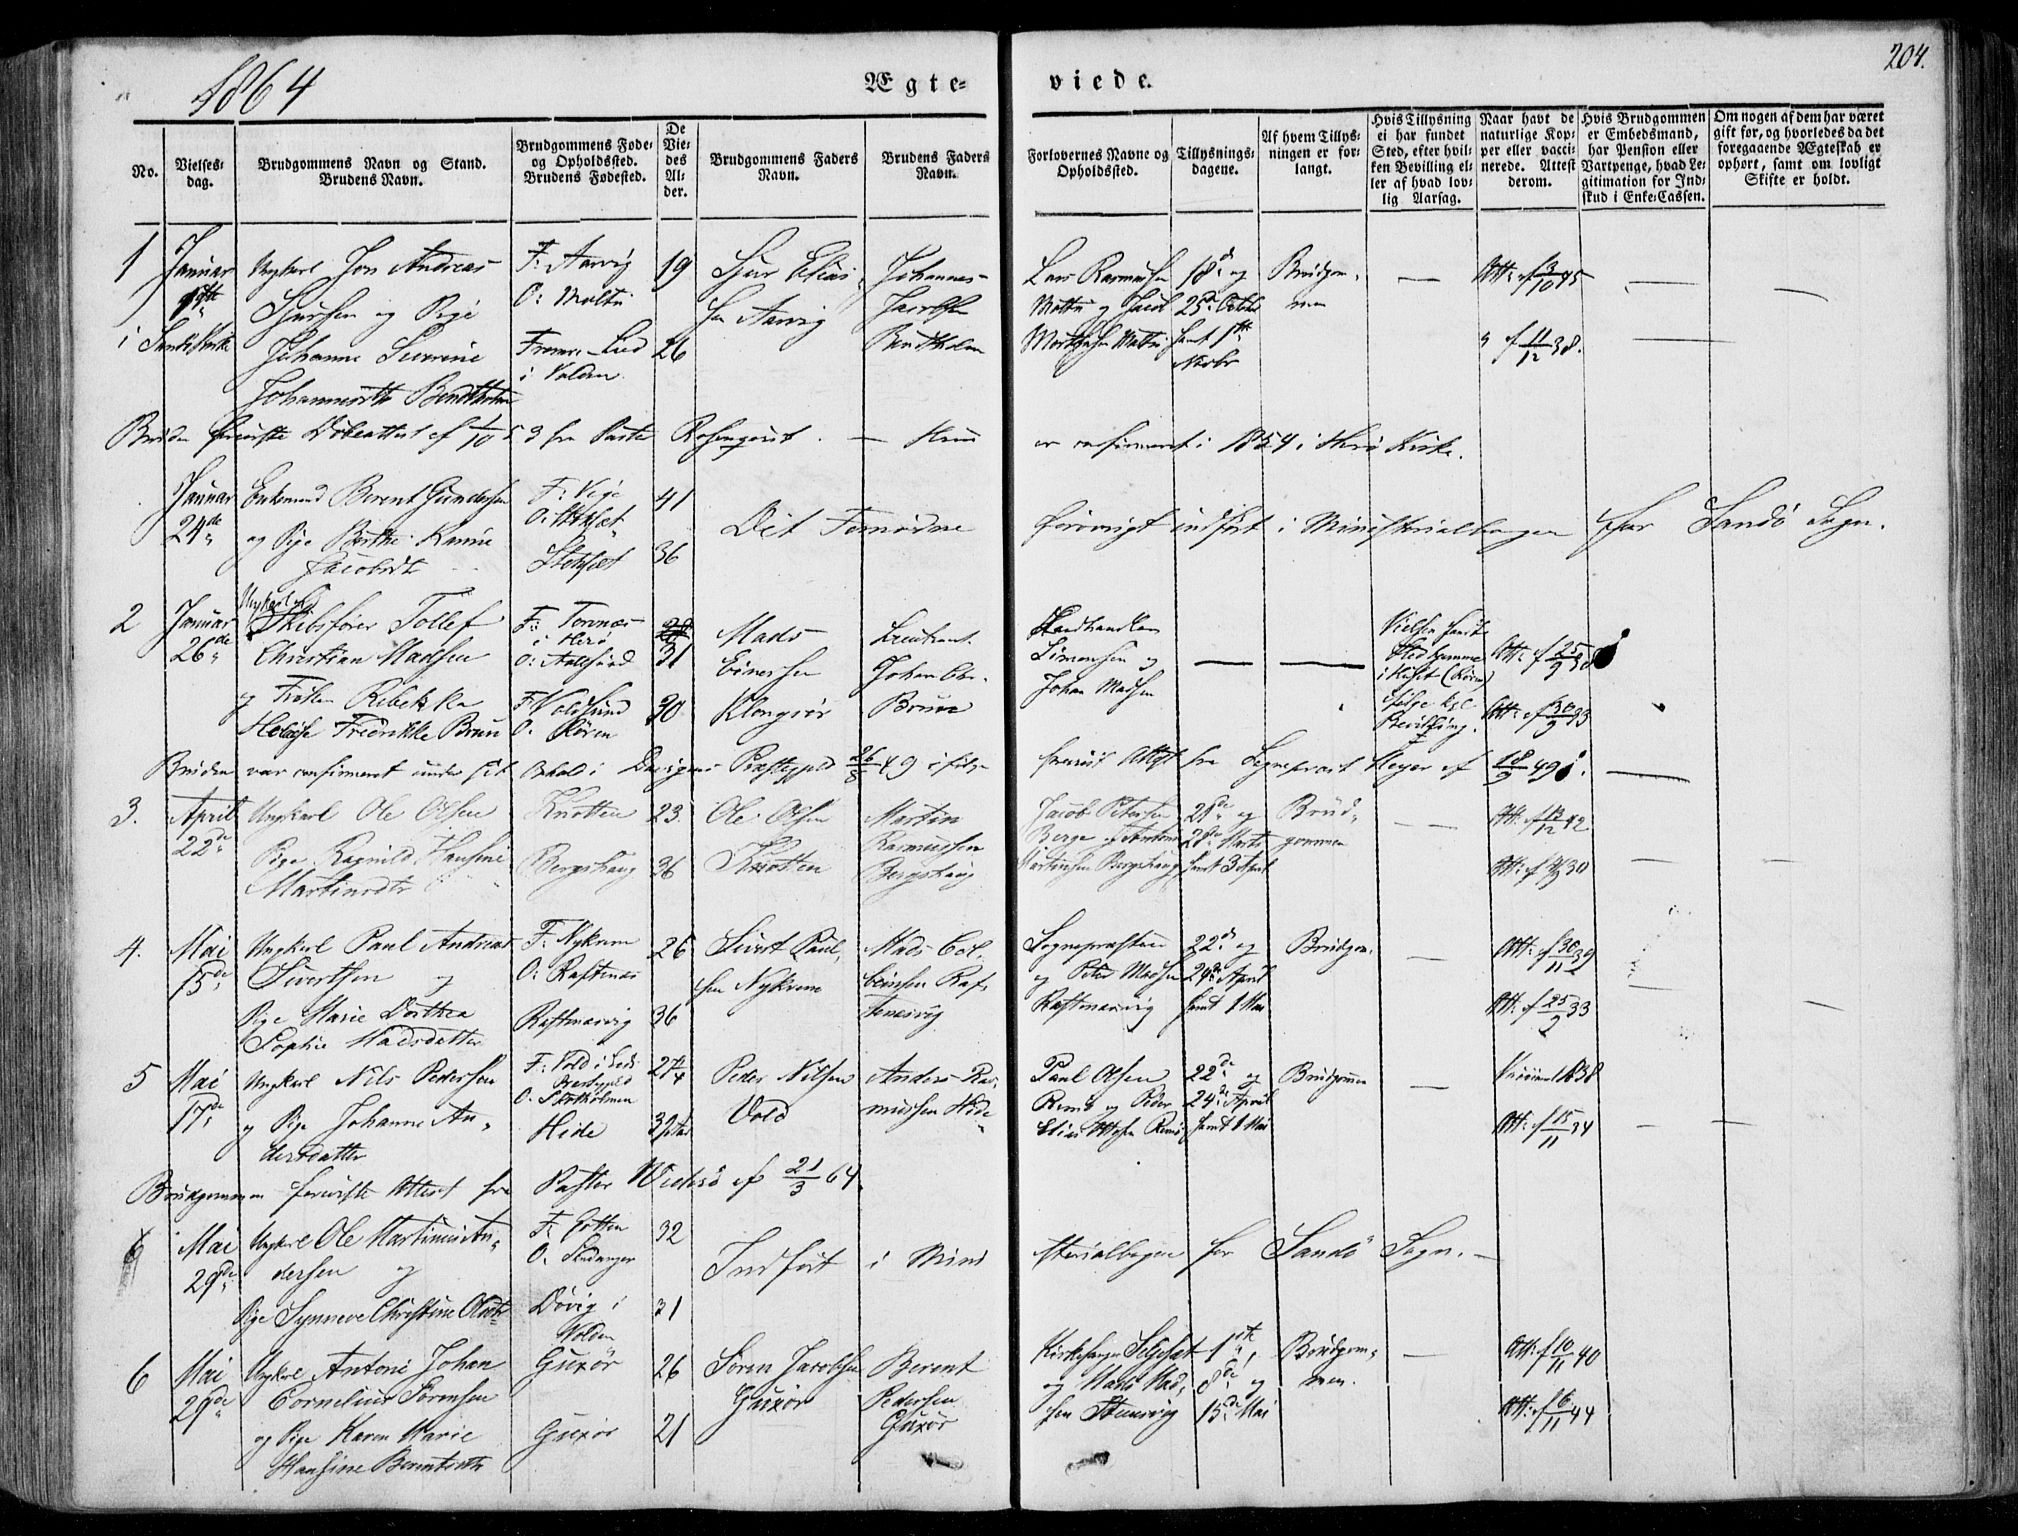 1864
Ægte-
viede.
204.
No.
Vielses-
dag.
Brudgommens Navn og Stand.
Brudens Navn.
Brudgommens Føde-
og Opholdssted.
Brudens Fødested.
De
Vie-
des
Al-
der.
Brudgommens Faders
Navn.
Brudens Faders
Navn.
Forlovernes Navne og
Opholdssted.
Tillysnings-
dagene.
Af hvem Tillys-
ningen er for-
langt.
Hvis Tillysning
ei har fundet
Sted, efter hvil-
ken Bevilling el-
ler af hvad lov-
lig Aarsag.
Naar havt de
naturlige Kop-
per eller vacci-
nerede. Attest
derom.
Hvis Brudgommen
er Embedsmand,
har Pension eller
Vartpenge, hvad Le-
gitimation for Ind-
skud i Enke-Cassen.
Om nogen af dem har været
gift før, og hvorledes da det
foregaaende Ægteskab er
ophørt, samt om lovligt
Skifte er holdt.
1
Januar
i Sandø Kirke
Ungkarl Jon Andreas
Sjursen og Pige
Johanne Severine
F: Aarvig
O: Moltu
i Volden
19
26
Sjur Elias-
sen Aarvig
Johannes
Jacobsen
Lars Rasmusen
Moltu og Jacob
18d og
25de October
samt 1ste
Novbr
Brudgom-
men
Att: af 3/10 45
" af 11/12 38.
Bruden foreviste Døbeattest af
fra Pastor
er confirmeret i 1854 i Herø Kirke.
Januar
24de
Enkemand Berent Gundersen
og Pige Berthe Karine
Jacobsdtr
41
36
Det Fornødne
forøvrigt indført i Ministerialbogen for Sandø Sogn.
2
Januar
26de
Ungkarl og
Skibsfører Tollef
Christian Madsen
og Frøken Rebekka
Heloise Fredrikke Bruun
F: Tornnæs
i Herø
O: Aalesund
F Voldsund
O. Røren
31
30
Mads
Einersen
Klongrør
Lieutnant
Johan Chr.
Bruun
Landhandler
Simonsen og
Johan Madsen
Vielsen fandt
Sted hjemme
i Huset (Røren)
ifølge kgl.
Bevilling.
Att: af 25/9 38
Att: af 30/9 33
Bruden var confirmeret under sit Ophold i
Præstegjeld 26/8 49 ifølge
foreviist Attest fra Sogneprest Meyer af 18/9 49.
3.
April
22de
Ungkarl Ole Olsen
Pige Ragnild Hansine
Martinsdtr
Knotten
Bergshaug
23
36
Ole Olsen
Knotten
Martin
Rasmussen
Bergshaug
Jacob Petersen
Berge og Antone
Martinsen Bergshaug
21de og
28de Marts
samt 3 April
Brud-
gommen
Att: af 12/12 42
4.
Mai
15de
Ungkarl Paul Andreas
Sivertsen og
Pige Marie Dorthea
Sophie Madsdatter
F: Nykrem
O: Raftenes
Raftnæsvig
26
36
Sivert Paul-
sen Nykrem
Mads Col-
beinsen Raf-
tenesvig
Sognepræsten
og Peter Madsen
Raftnæsvig
22de og
24de April
samt 1 Mai
Brudgom.
Att: af 30/11 39
Att: af 25/9 33
5
Mai
17de
Ungkarl Nils Pedersen
og Pige Johanne An-
dersdatter
Præstegjeld
O: Stokholmen
Hide
Peder Nilsen
Vold
Anders Ras-
mussen Hide
Paul Olsen
Remø og Peder
Elias Olsen Remø
22de og
24de April
samt 1 Mai
Brudgommen
Att: af 15/11 34
Brudgommen foreviste Attest fra Pastor
af 21/3 64.
6
Mai
29de
Ungkarl Ole Martinus An-
dersen og
Pige Synneve Christine Olsdtr
F: Gotten
Døvig i
Volden
32
31
Indført i Mini
sterialbogen for Sandø Sogn.
6
Mai
29de
Ungkarl Antoni Johan
Cornelius Sørensen
og Pige Karen Marie
Hansine Berentsdtr
Gurør
Gurør
26
21
Søren Jacobsen
Gurør
Berent
Pedersen
Gurør
Kirkesanger
og Mads Mad-
sen
1ste,
8de og
15de Mai
Brudgom-
men.
Att: af 10/11 40
Att: af 6/11 44